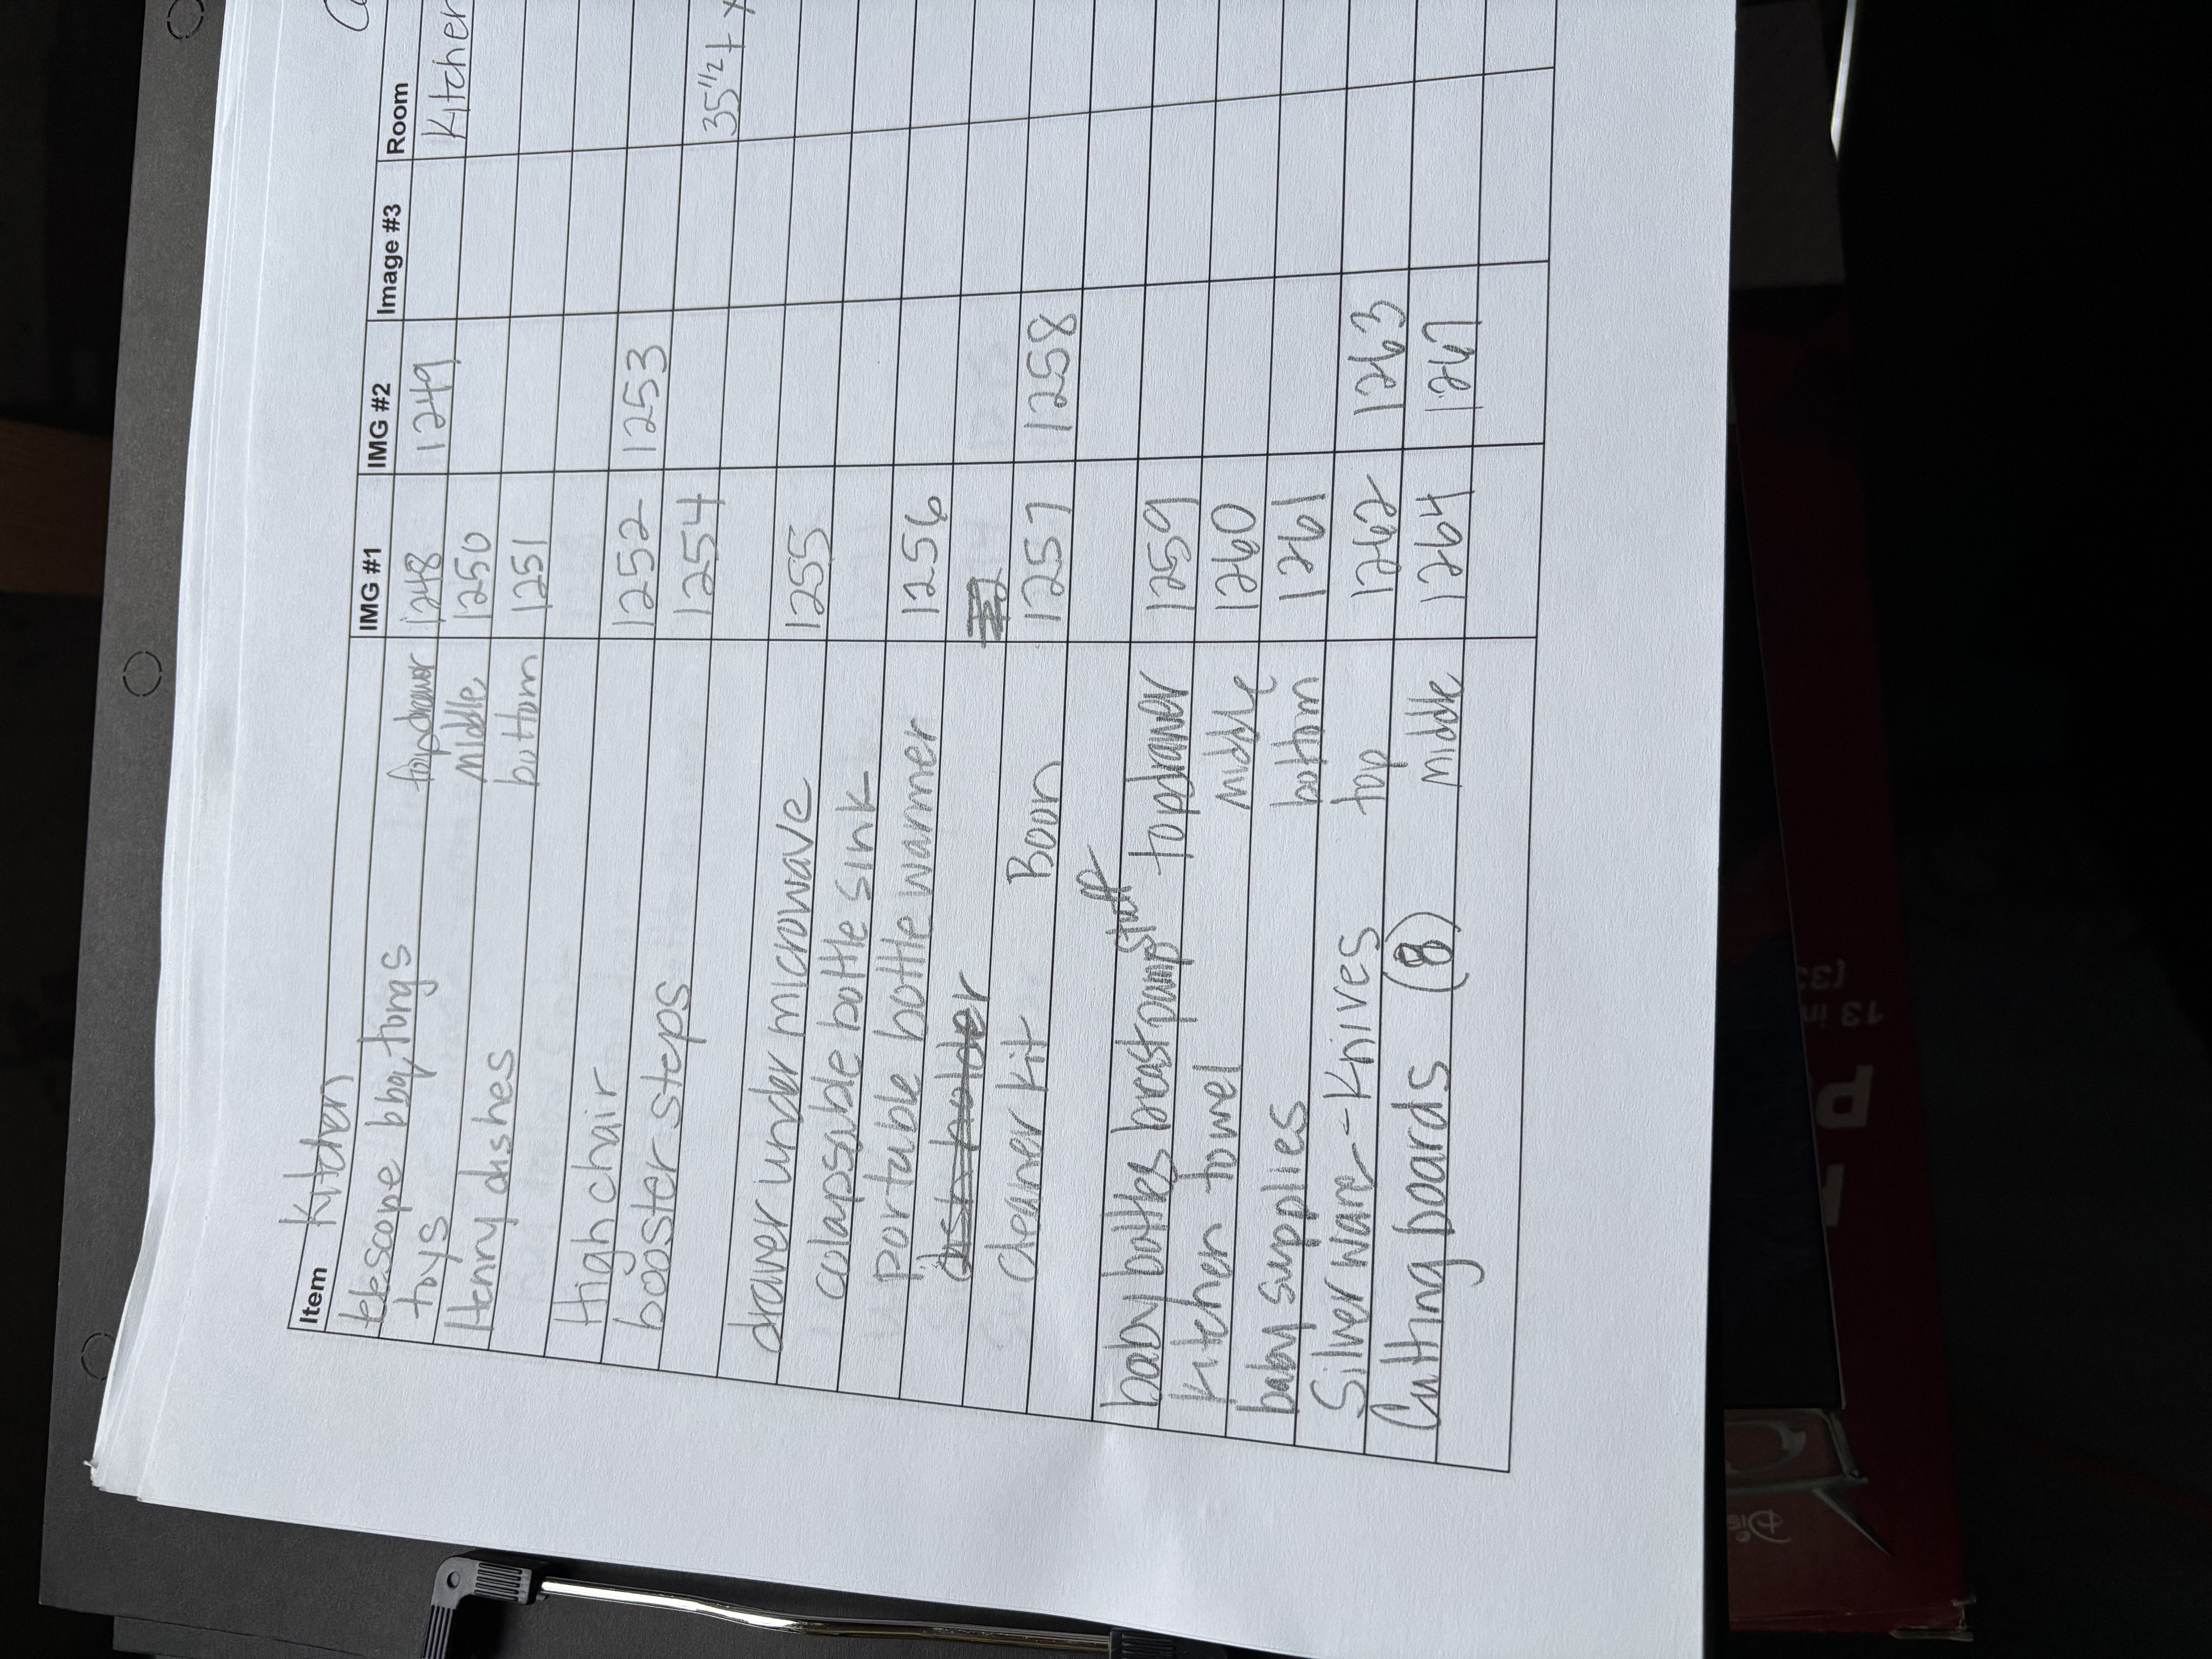 Item Kitchen IMG #1 IMG #2 Image #3 Room
telescope bbq, tongs
toys top drawer 1248 1249 Kitchen
Henny dishes middle 1250
bottom 1251
High chair 1252 1253
booster steps 1254 35 1/2 + x
drawer under microwave 1255
colapsable bottle sink
portable bottle warmer 1256
dish holder
cleaner kit Boon 1257 1258
baby bottles breast pump stuff top drawer 1259
Kitchen towel middle 1260
baby supplies bottom 1261
Silverware - Knives top 1262 1263
Cutting boards (8) middle 1264
13 in
(33